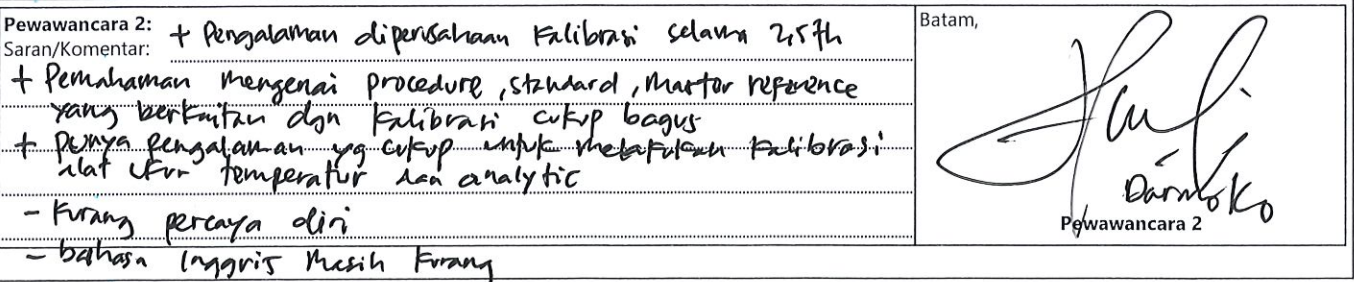 Pewawancara 2:
Saran/Komentar:
+ Pengalaman diperusahaan kalibrasi selama 2,5th
+ Pemahaman mengenai procedure, standard, master reference
yang berkaitan dgn kalibrasi cukup bagus
+ punya pengalaman yg cukup untuk melakukan kalibrasi
alat ukur temperatur dan analytic
- kurang percaya diri
- bahasa Inggris masih kurang
Batam,
Darmoko
Pewawancara 2